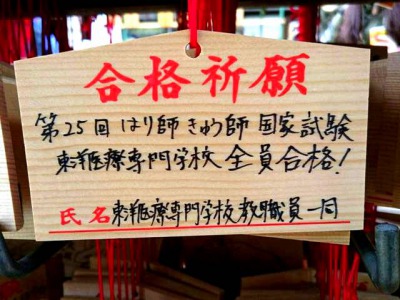 合格祈願
第25回 はり師 きゅう師 国家試験
東洋医療専門学校 全員合格!
氏名 東洋医療専門学校 教職員一同